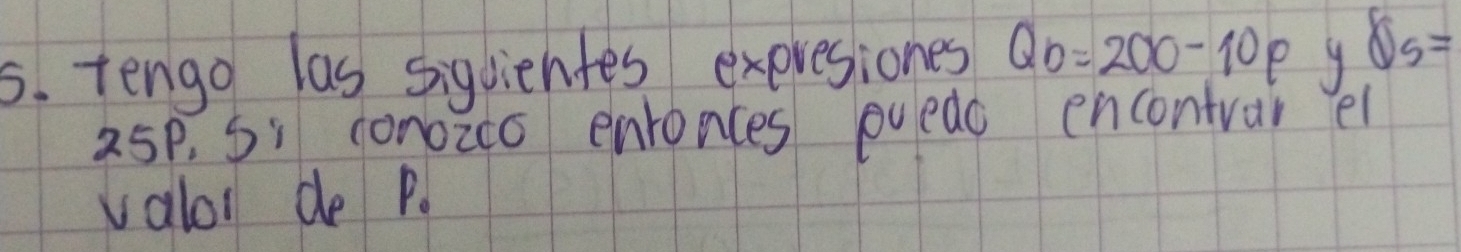 5. tengo las siguientes expresiones QD=200-10p y Qs=
25p. Si conozco entonces puedo encontrar el
valor de P.